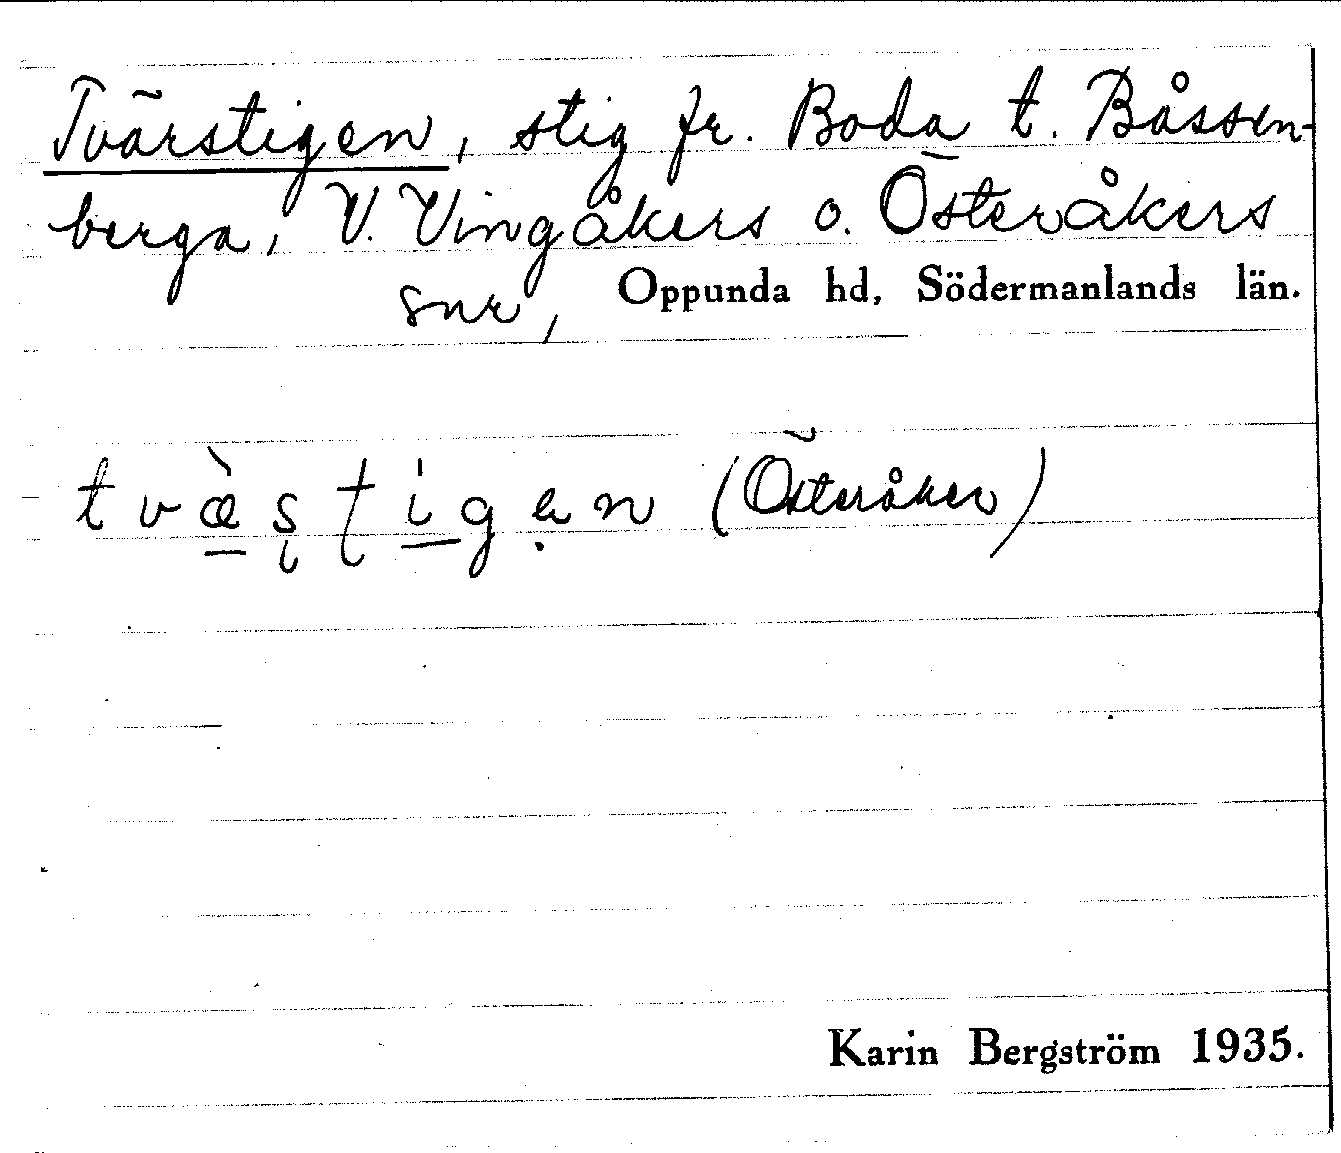 Tvärstigen, stig fr. Boda t. Båssen-
berga, V. Vingåkers o. Österåkers
snr, Oppunda hd, Södermanlands län.
tvæ̀ʂʈigẹn (Österåker)
Karin Bergström 1935.